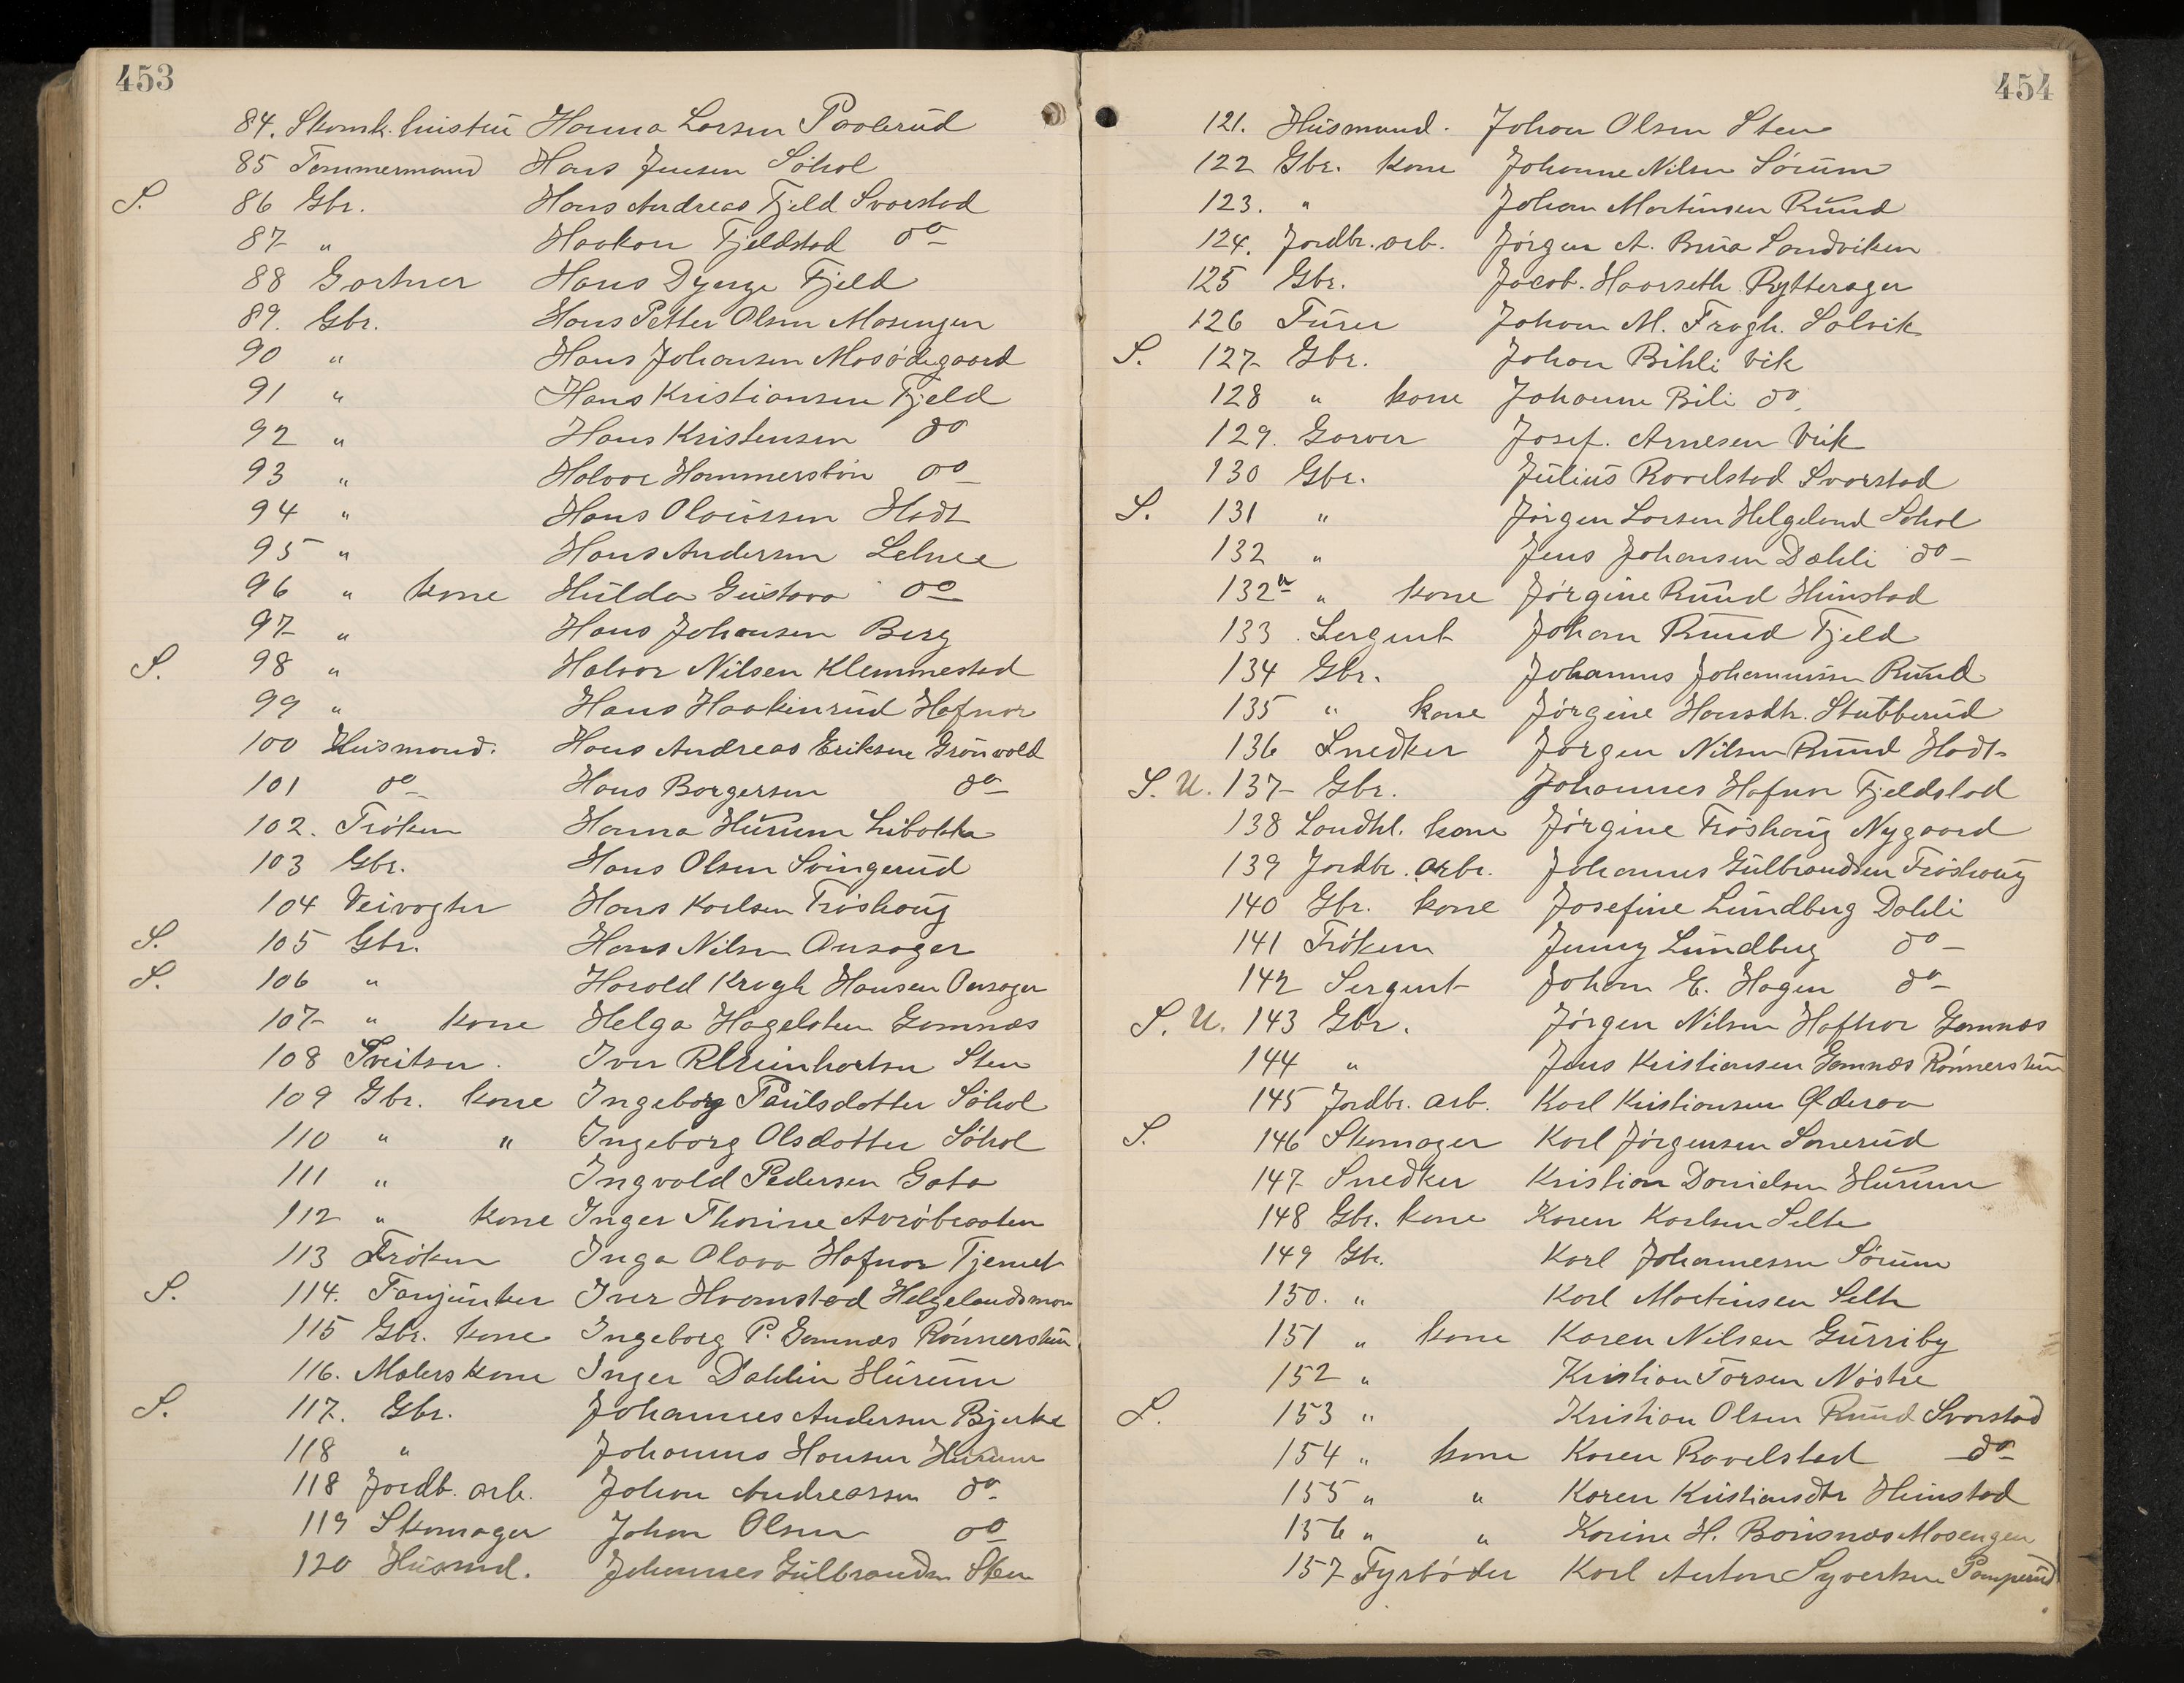 453
84. Skomk. hustru Hanna Larsen Paalerud
85 Tommermand Hans Jensen Söhol
S. 86 Gbr. Hans Andreas Fjeld Svarstad
87 " Haakon Fjeldstad do
88 Gartner Hans Dynge Fjeld
89. Gbr. Hans Petter Olsen Mosengen
90 " Hans Johansen Mosödegaard
91 " Hans Kristiansen Fjeld
92 " Hans Kristensen do
93 " Halvor Hammerstön do
94 " Hans Olaussen Hadt
95 " Hans Andersen Lehne
96 " kone Hulda Gustava do
97 " Hans Johansen Berg
S. 98 " Halvor Nilsen Klemmestad
99 " Hans Haakinrud Hafnor
100 Husmand. Hans Andreas Eriksen Grönvold
101 do Hans Borgersen do
102. Fröken Hanna Hurum Libakka
103 Gbr. Hans Olsen Svingerud
104 Veivogter Hans Karlsen Fröshaug
S. 105 Gbr. Hans Nilsen Onsager
S. 106 " Harald Krogh Hansen Onsager
107 " kone Helga Hagelsten Gomnæs
108 Sveitser. Iver Rheinhartsen Sten
109 Gbr. kone Ingeborg Paulsdotter Söhol
110 " " Ingeborg Olsdotter Söhol
111 " Ingvald Pedersen Gata
112 " kone Inger Thorine Avröbraaten
113 Fröken Inga Olava Hafnor Tjernet
S. 114. Fanjunker Iver Hvamstad Helgelandsmoen
115 Gbr. kone Ingeborg P. Gomnæs Rönnerstun
116. Malers kone Inger Dahlin Hurum
S. 117. Gbr. Johannes Andersen Bjerke
118 " Johannes Hansen Hurum
118 Jordb. arb. Johan Andreassen do
119 Skomager Johan Olsen do
120 Husmd. Johannes Gulbrandsn Sten
454
121. Husmand. Johan Olsen Sten
122 Gbr. kone Johanne Nilsen Sörum
123. " Johan Martinsen Ruud
124. Jordbr. arb. Jörgen A. Brua Sandviken
125 Gbr. Jacob. Haarseth Rytterager
126 Furer Johan M. Frogh. Solvik
S. 127 Gbr. Johan Bihli Vik
128 " kone Johanne Bili do.
129. Garver Josef. Arnesen Vik
130 Gbr. Julius Ravelstad Svarstad
S. 131 " Jörgen Larsen Helgeland Søhol
132 " Jens Johansen Dæhli do
132a " kone Jörgine Ruud Hunstad
133. Sergent Johan Ruud Fjeld
134 Gbr. Johannes Johannissen Ruud
135 " kone Jörgine Hansdtr. Stubberud
136 Snedker Jörgen Nilsen Ruud Hadt
S. U. 137 Gbr. Johannes Hafnor Fjeldstad
138 Landhl. kone Jörgine Fröshaug Nygaard
139 Jordbr. arbr. Johannes Gulbrandsen Fröshaug
140 Gbr. kone Josefine Lundberg Dahli
141 Fröken Jenny Lundberg do
142 Sergent Johan E. Hagen do
S. U. 143 Gbr. Jörgen Nilsen Hafnor Gomnæs
144 " Jens Kristiansen Gomnæs Rönnerstun
145 Jordbr. arb. Karl Kristiansen Oderaa
S. 146 Skomager Karl Jörgensen Sonerud
147 Snedker Kristian Danielsen Hurum
148 Gbr. kone Karen Karlsen Selte
149 Gbr. Karl Johannesen Sörum
150. " Karl Martinsen Selte
151 " kone Karen Nilsen Gurriby
152 " Kristian Torsen Nöstre
S. 153 " Kristian Olsen Ruud Svarstad
154 " kone Karen Ravelstad do
155 " " Karen Kristiansdtr Hunstad
156 " " Karine H. Bönsnæs Mosengen
157 Fyrböder Karl Anton Syversen Pamperud